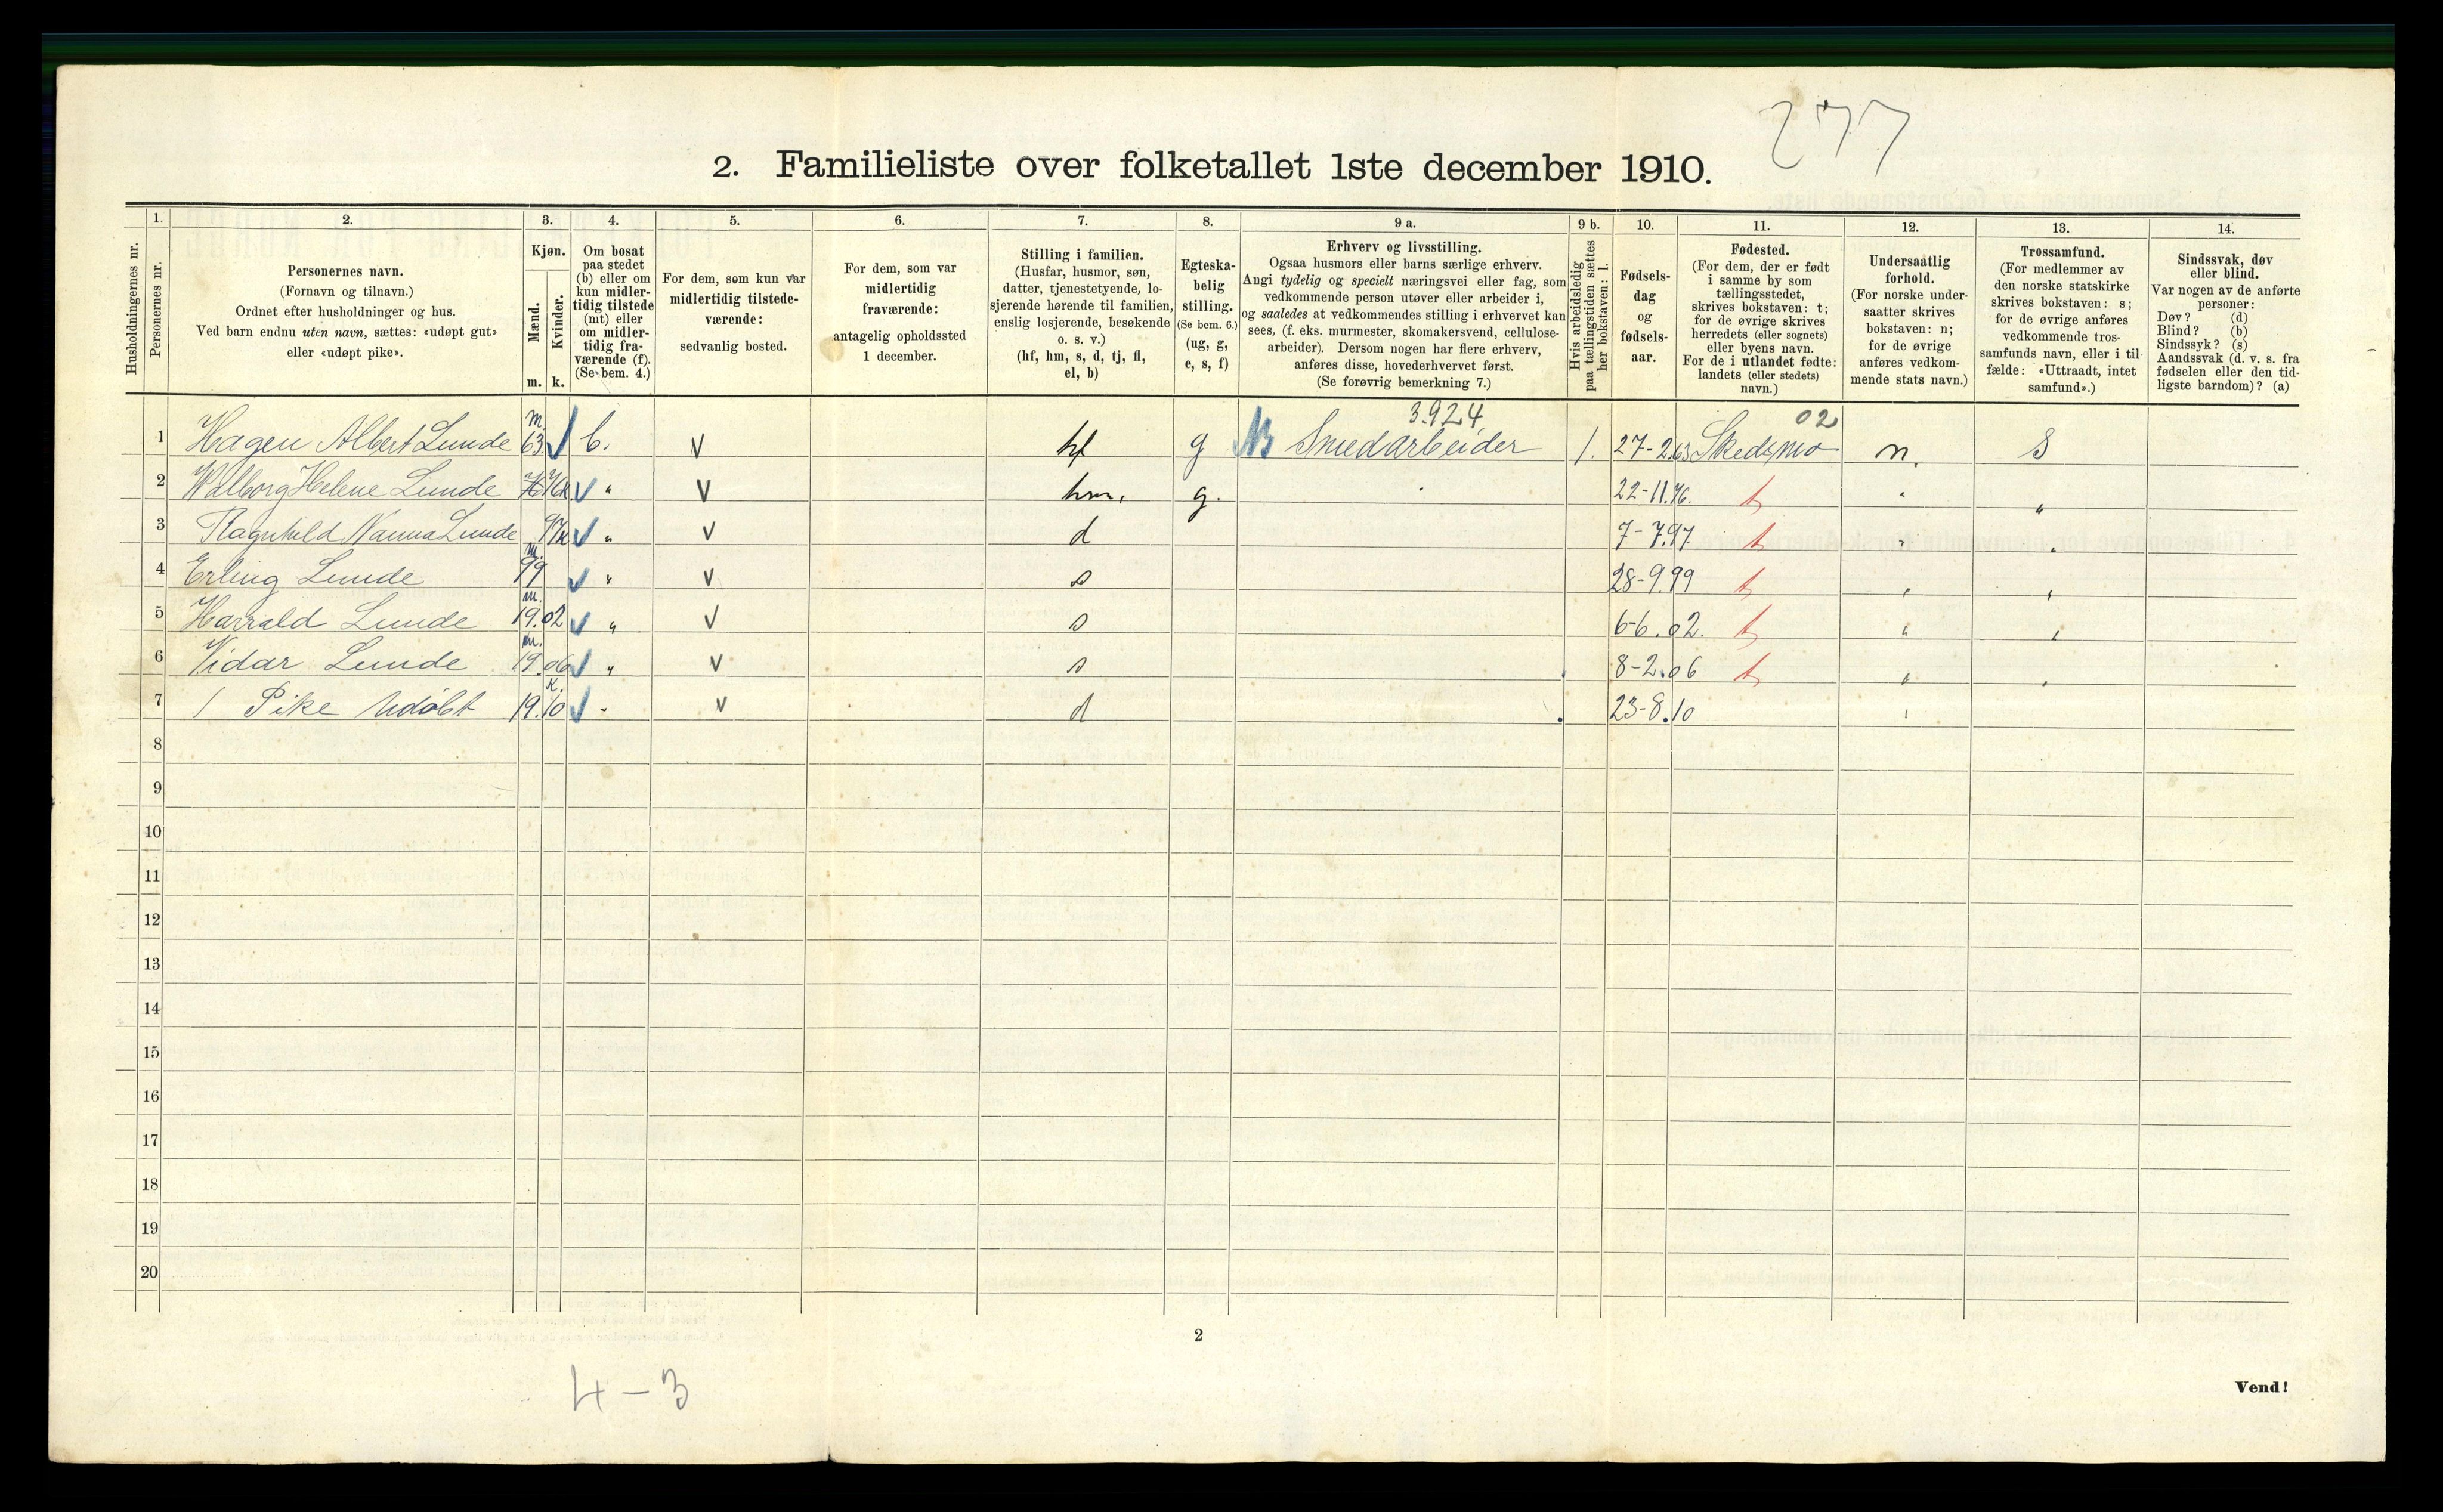 277
2. Familieliste over folketallet 1ste december 1910.
Husholdningernes nr.
1.
Personernes nr.
2.
Personernes navn.
(Fornavn og tilnavn.)
Ordnet efter husholdninger og hus.
Ved barn endnu uten navn, sættes: «udøpt gut»
eller «udøpt pike».
3.
Kjøn.
Mænd.
m.
Kvinder.
k.
4.
Om bosat
paa stedet
(b) eller om
kun midler-
tidig tilstede
(mt) eller
om midler-
tidig fra-
værende (f).
(Se bem. 4.)
5.
For dem, som kun var
midlertidig tilstede-
værende:
sedvanlig bosted.
6.
For dem, som var
midlertidig
fraværende:
antagelig opholdssted
1 december.
7.
Stilling i familien.
(Husfar, husmor, søn,
datter, tjenestetyende, lo-
sjerende hørende til familien,
enslig losjerende, besøkende
o. s. v.)
(hf, hm, s, d, tj, fl,
el, b)
8.
Egteska-
belig
stilling.
(Se bem. 6.)
(ug, g,
e, s, f)
9 a.
Erhverv og livsstilling.
Ogsaa husmors eller barns særlige erhverv.
Angi tydelig og specielt næringsvei eller fag, som
vedkommende person utøver eller arbeider i,
og saaledes at vedkommendes stilling i erhvervet kan
sees, (f. eks. murmester, skomakersvend, cellulose-
arbeider). Dersom nogen har flere erhverv,
anføres disse, hovederhvervet først.
(Se forøvrig bemerkning 7.)
9 b.
Hvis arbeidsledig
paa tællingstiden sættes
her bokstaven: l.
10.
Fødsels-
dag
og
fødsels-
aar.
11.
Fødested.
(For dem, der er født
i samme by som
tællingsstedet,
skrives bokstaven: t;
for de øvrige skrives
herredets (eller sognets)
eller byens navn.
For de i utlandet fødte:
landets (eller stedets)
navn.)
12.
Undersaatlig
forhold.
(For norske under-
saatter skrives
bokstaven: n;
for de øvrige
anføres vedkom-
mende stats navn.)
13.
Trossamfund.
(For medlemmer av
den norske statskirke
skrives bokstaven: s;
for de øvrige anføres
vedkommende tros-
samfunds navn, eller i til-
fælde: «Uttraadt, intet
samfund».)
14.
Sindssvak, døv
eller blind.
Var nogen av de anførte
personer:
Døv? (d)
Blind? (b)
Sindssyk? (s)
Aandssvak (d. v. s. fra
fødselen eller den tid-
ligste barndom)? (a)
3.924 02
1 Hagen Albert Lunde m. 63 b. v hf g Smedarbeider l. 27-2.63 Skedsmo n. S
2 Walborg Helene Lunde 76 k. " v hm. g. 22-11.76. t " "
3 Ragnhild Nanna Lunde 97 k " v d 7-7.97 t " "
4 Erling Lunde m. 99 " v s 28-9.99 t " "
5 Harrald Lunde m. 19.02 " v s 6-6.02. t " "
6 Vidar Lunde m. 19.06 " v s 8-2.06 t " "
7 1 Pike Udöbt k. 19.10 " v d 23-8.10 "
8
9
10
11
12
13
14
15
16
17
18
19
20
2
4-3
Vend!